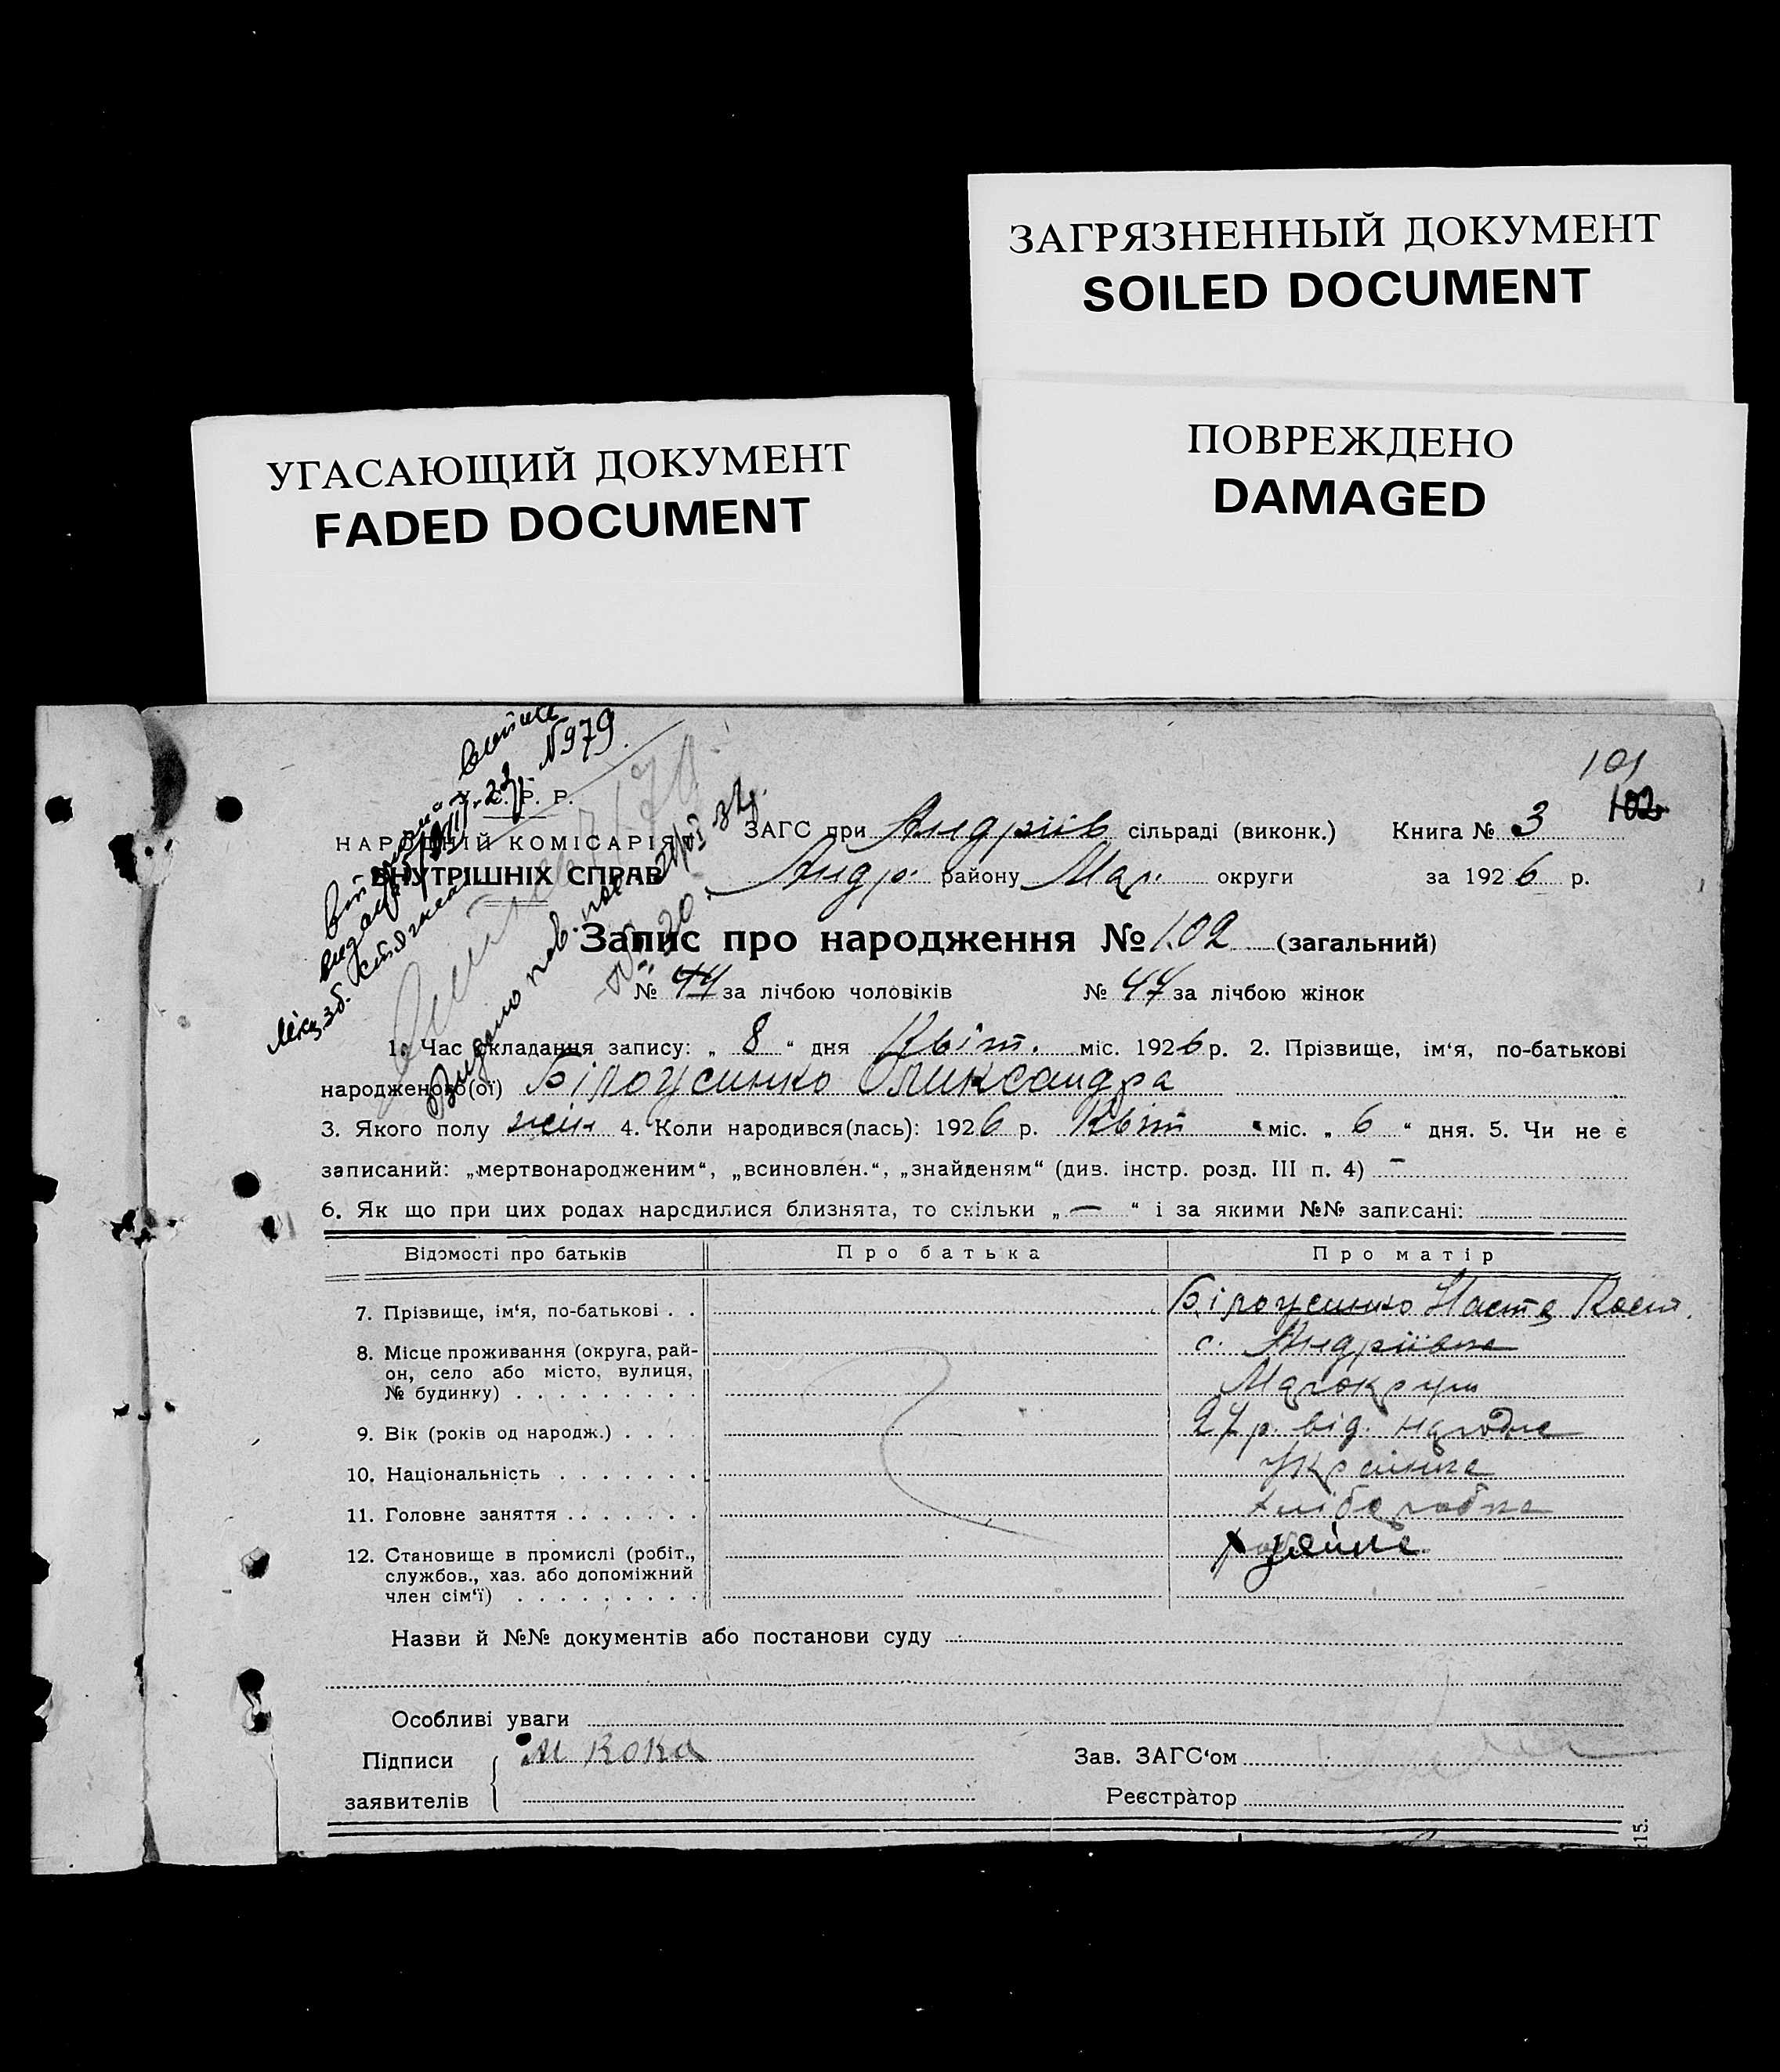 ЗАГРЯЗНЕННЫЙ ДОКУМЕНТ
SOILED DOCUMENT
УГАСАЮЩИЙ ДОКУМЕНТ
FADED DOCUMENT
ПОВРЕЖДЕНО
DAMAGED
101
102
№979
Р. Р.
НАРОДНІЙ КОМІСАРІЯТ
ВНУТРІШНІХ СПРАВ
ЗАГС при Андріїв сільраді (виконк.) Книга № 3
Андр. району Мар. округи за 1926 р.
Запис про народження № 102 (загальний)
№ за лічбою чоловіків № 47 за лічбою жінок
1. Час складання запису: „ 8 “ дня Квіт. міс. 1926 р. 2. Прізвище, ім‘я, по-батькові
народженого(ої) Білоусинко Оликсандра
3. Якого полу жін 4. Коли народився(лась): 1926 р. Квіт міс. „ 6 “ дня. 5. Чи не є
записаний: „мертвонародженим“, „всиновлен.“, „знайденям“ (див. інстр. розд. III п. 4) –
6. Як що при цих родах народилися близнята, то скільки „ — “ і за якими №№ записані:
Відомості про батьків Про батька Про матір
7. Прізвище, ім‘я, по-батькові . . Білоусинко Настя Кост.
8. Місце проживання (округа, рай- с. Андріївка
он, село або місто, вулиця,
№ будинку) . . . . . . . . . Маріокруги
9. Вік (років од народж.) . . . . 27 р. від. народж
10. Національність . . . . . . . Українка
11. Головне заняття . . . . . . . хліборобка
12. Становище в промислі (робіт., хазяйка
службов., хаз. або допоміжний
член сім‘ї) . . . . . . . . .
Назви й №№ документів або постанови суду
Особливі уваги
Підписи М Кока Зав. ЗАГС‘ом
заявителів Реєстратор
15.